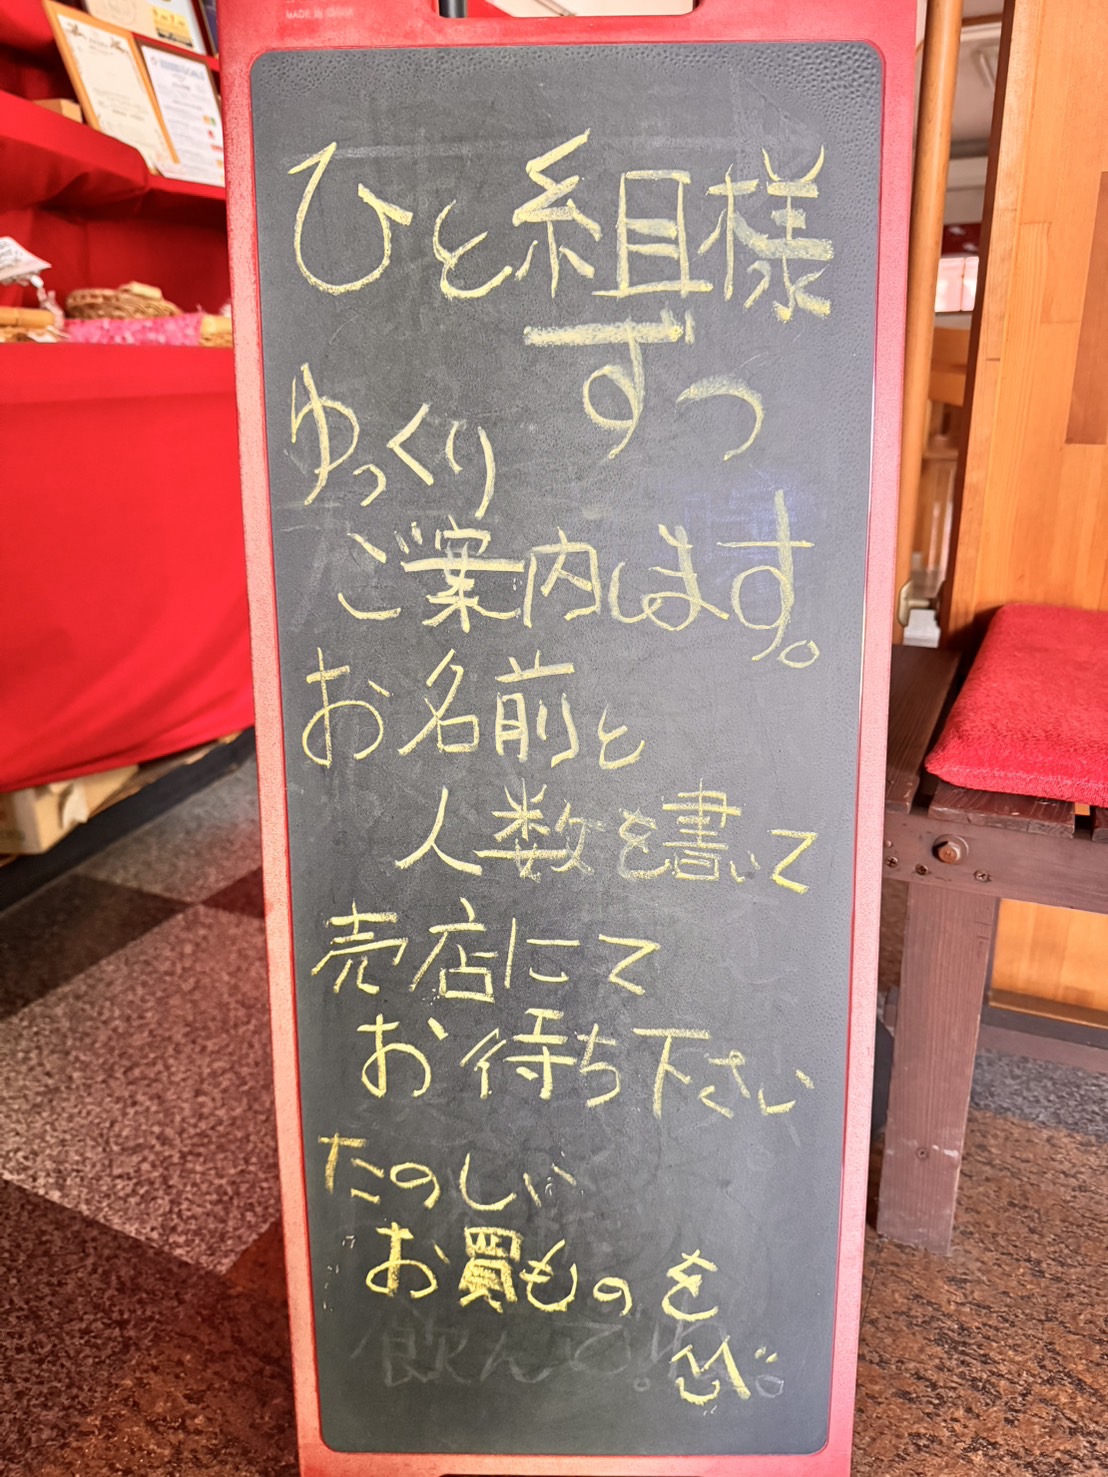 MADE IN
ひと組様
ずつ
ゆっくり
ご案内します。
お名前と
人数を書いて
売店にて
お待ち下さい
たのしい
お買ものを
飲んで